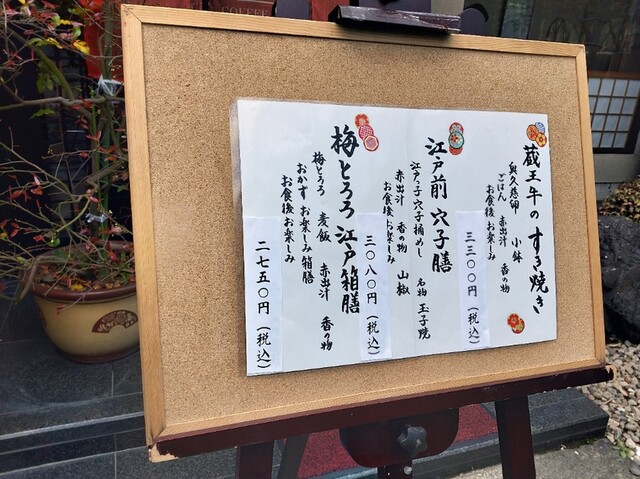 COFFEE
蔵王牛のすき焼き
奥久慈卵 小鉢 香の物
ごはん 赤出汁
お食後お楽しみ
三三〇〇円(税込)
江戸前 穴子膳
江戸っ子穴子桶めし 名物玉子焼
赤出汁 香の物 山椒
お食後お楽しみ
三〇八〇円(税込)
梅とろろ 江戸箱膳
梅とろろ 麦飯 赤出汁 香の物
おかずお楽しみ箱膳
お食後お楽しみ
二七五〇円(税込)